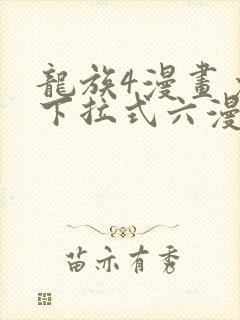 龍族4漫畫
下拉式六漫
苗亦有秀